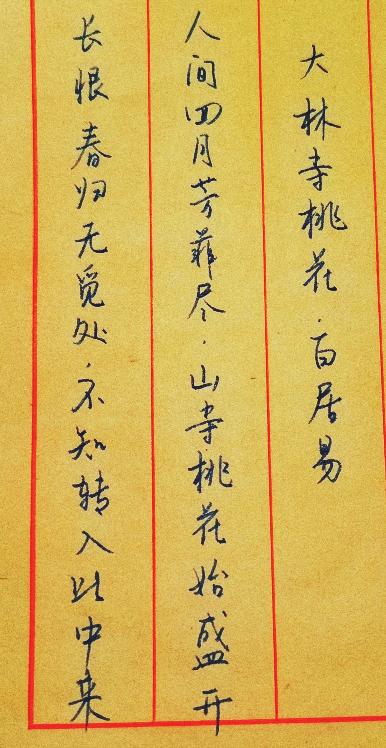 大林寺桃花·白居易
人间四月芳菲尽·山寺桃花始盛开
长恨春归无觅处·不知转入此中来